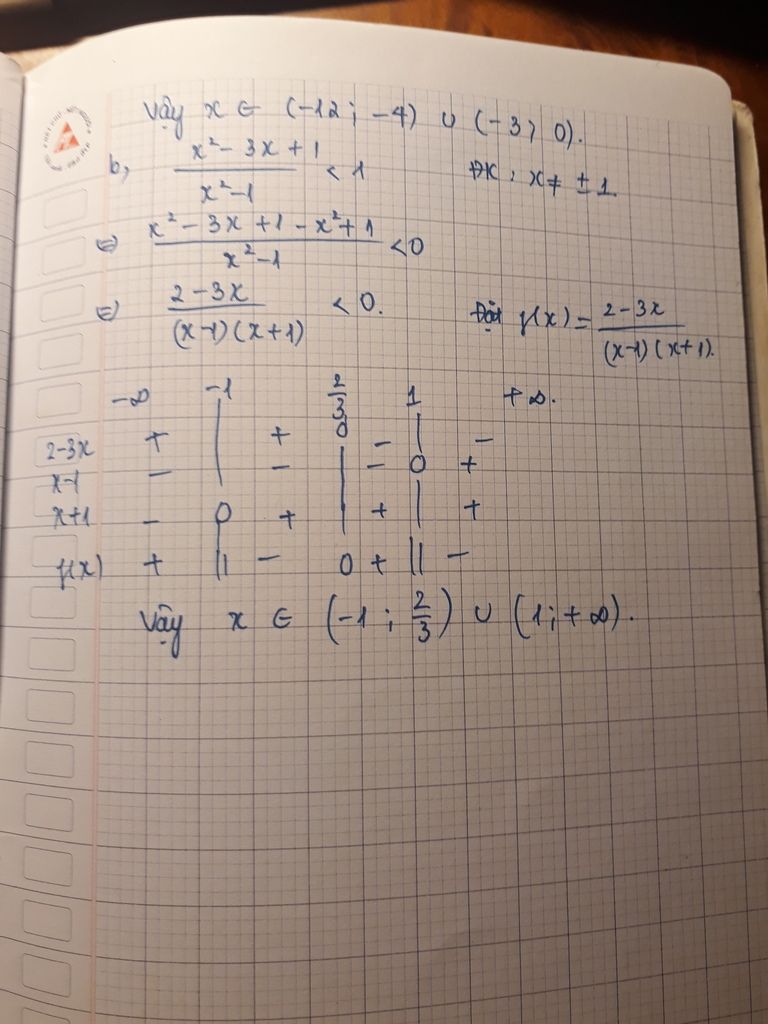 Vậy x ∈ (-12; -4) ∪ (-3; 0).
b, (x² - 3x + 1)/(x² - 1) < 1 ĐK: x ≠ ± 1.
⇔ (x² - 3x + 1 - x² + 1)/(x² - 1) < 0
⇔ (2 - 3x)/((x-1)(x+1)) < 0. Đặt f(x) = (2 - 3x)/((x-1)(x+1)).
-∞ -1 2/3 1 +∞.
2-3x + | + 0 - | -
x-1 - | - | - 0 +
x+1 - 0 + | + | +
f(x) + || - 0 + || -
Vậy x ∈ (-1; 2/3) ∪ (1; +∞).